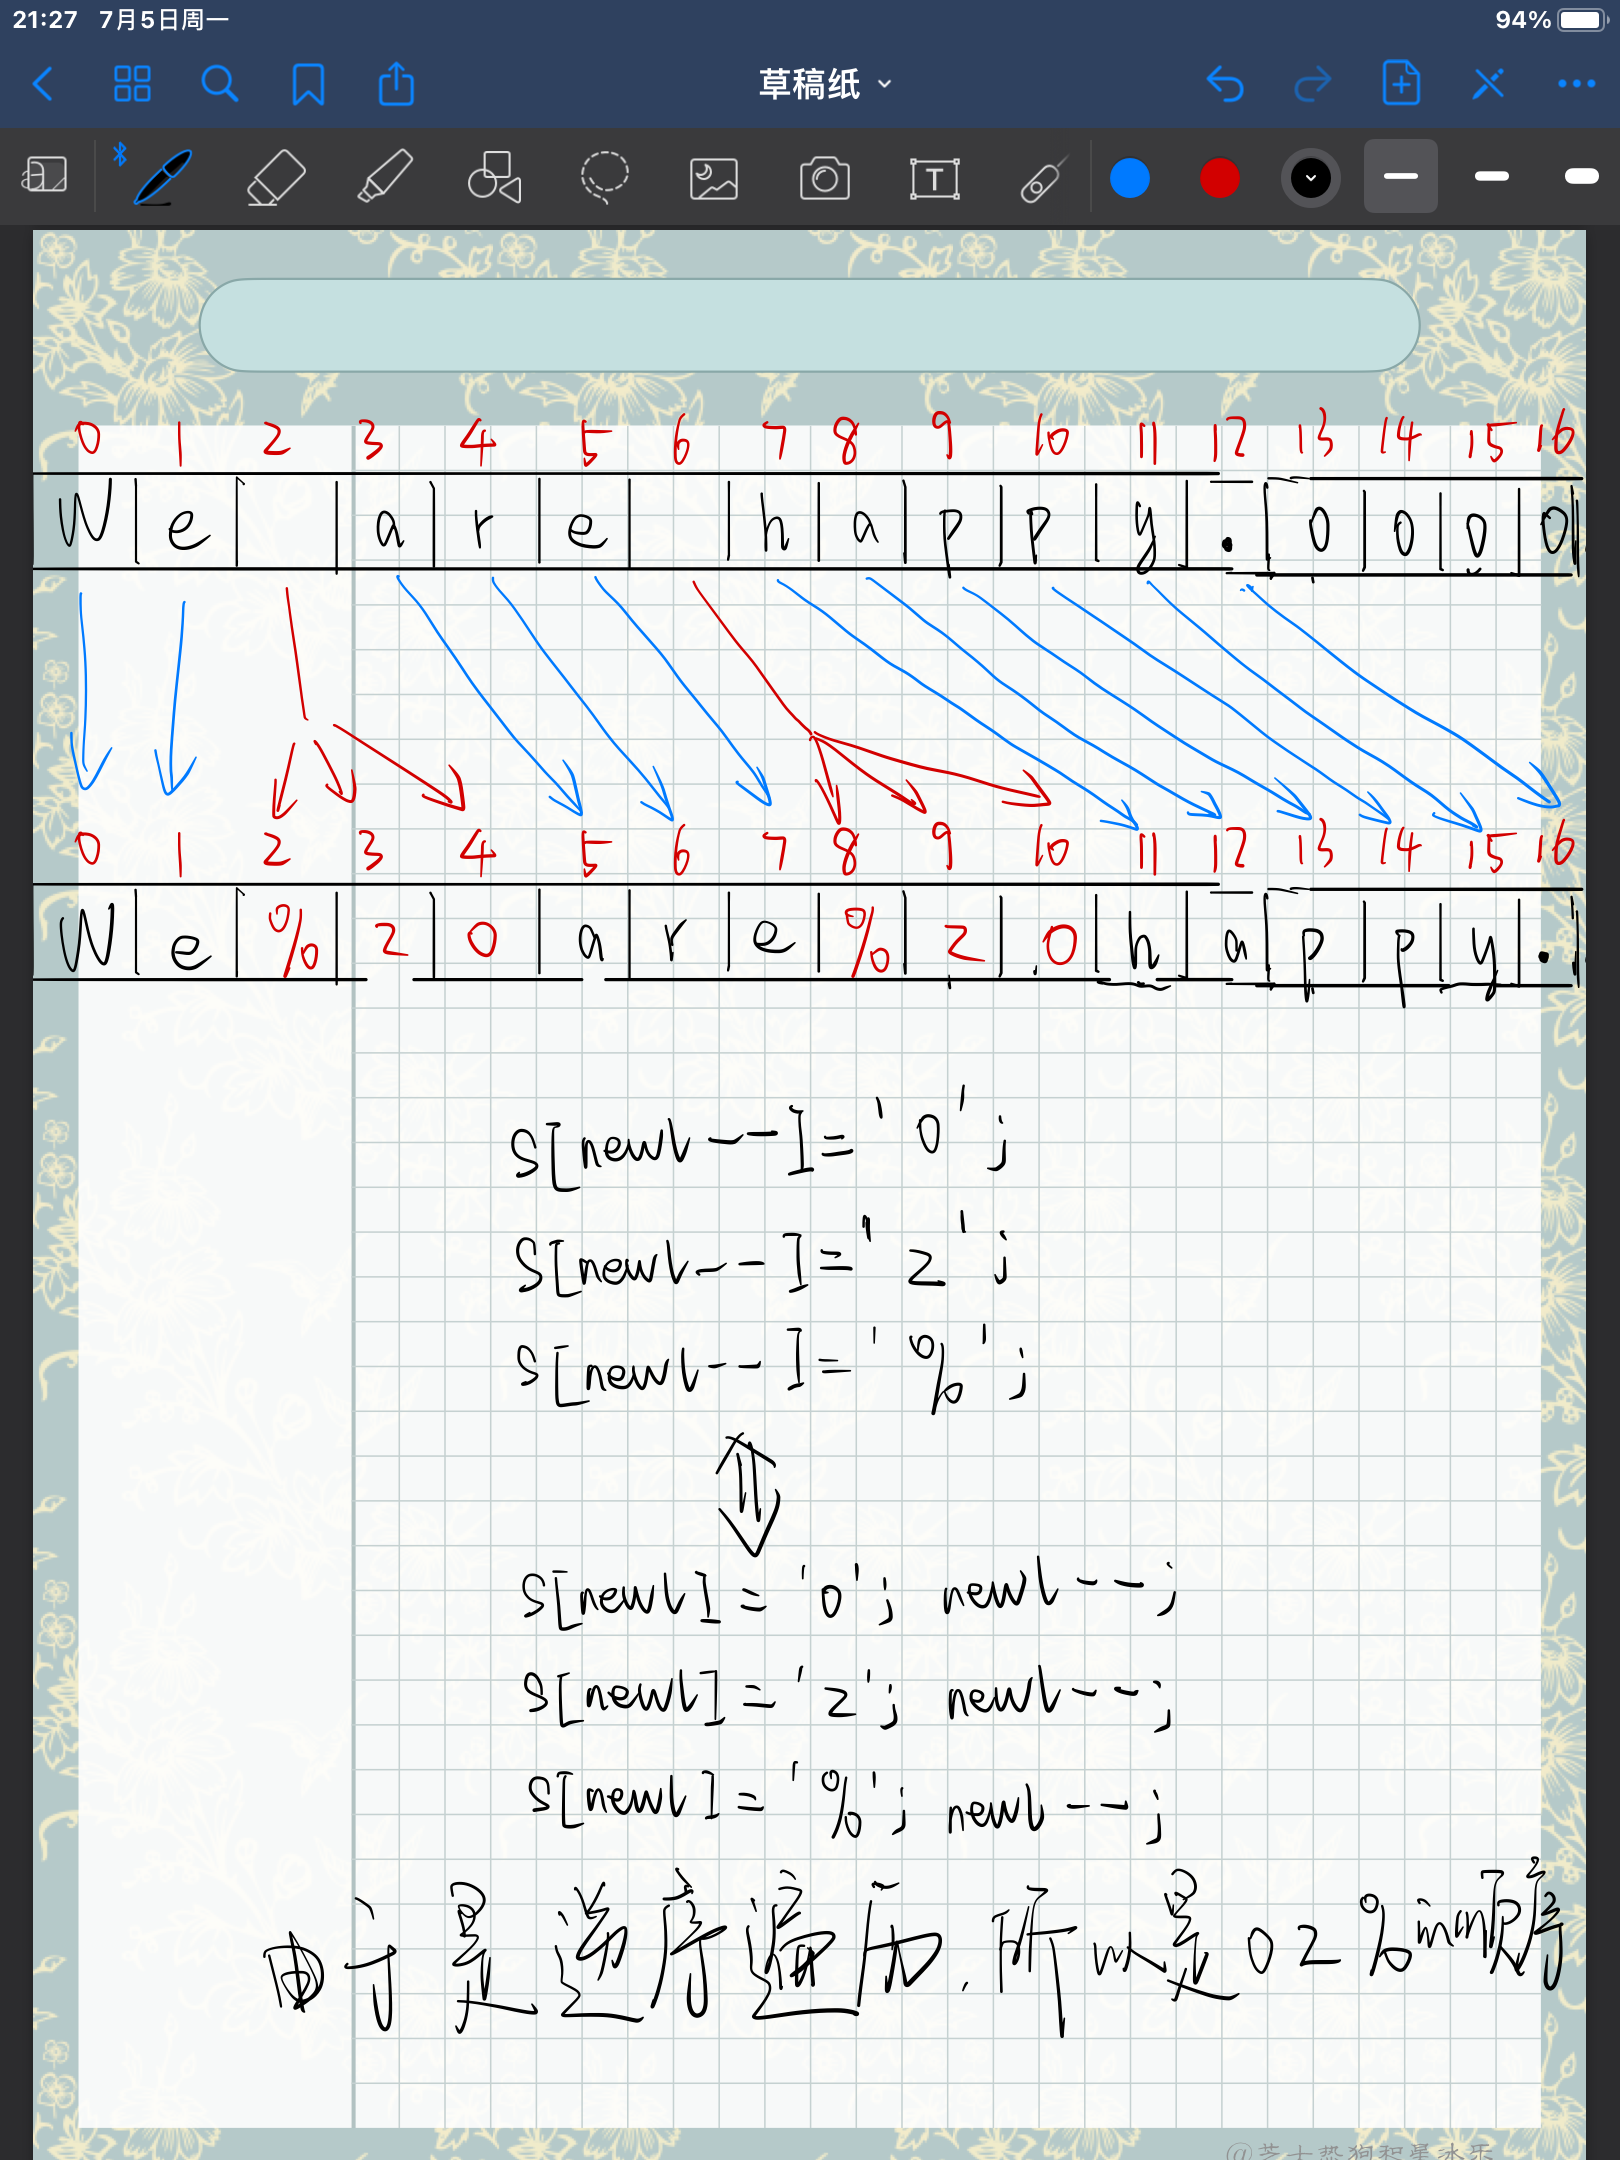 21:27 7月5日周一 94%
草稿纸
T
0 1 2 3 4 5 6 7 8 9 10 11 12 13 14 15 16
W e a r e h a p p y . 0 0 0 0
0 1 2 3 4 5 6 7 8 9 10 11 12 13 14 15 16
W e % 2 0 a r e % 2 0 h a p p y .
s[newl--]='0';
s[newl--]='2';
s[newl--]='%';
s[newl]='0'; newl--;
s[newl]='2'; newl--;
s[newl]='%'; newl--;
由于是逆序遍历,所以是02%的顺序
@芝士热狗和星冰乐